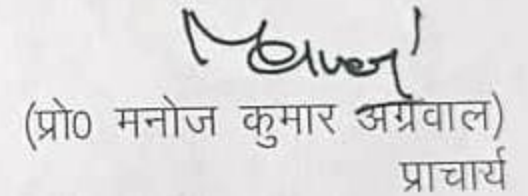 (प्रो0 मनोज कुमार अग्रवाल)
प्राचार्य